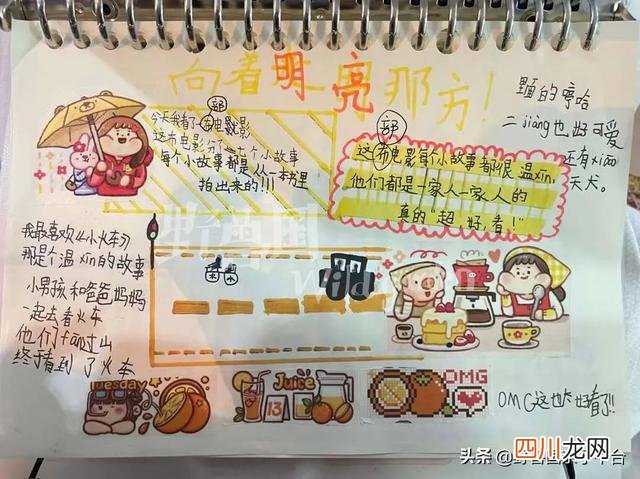 向着明亮那方!
今天我看了一部电影
这布电影有个小故事
每个小故事都是从一本书里
拍出来的!!!
部
这布电影每个小故事都很温xin,
他们都是一家人一家人的
真的"超好,看!"
里面的哼哈
二jiàng也好可爱
还有xiao
天犬。
我最喜欢《小火车》
那是个温xin的故事
小男孩和爸爸妈妈
一起去看火车
他们fan过山
终于看到了火车
野萄园
Tuesday
Juice
13
OMG
OMG这也太好看了!!
头条
四川龙网